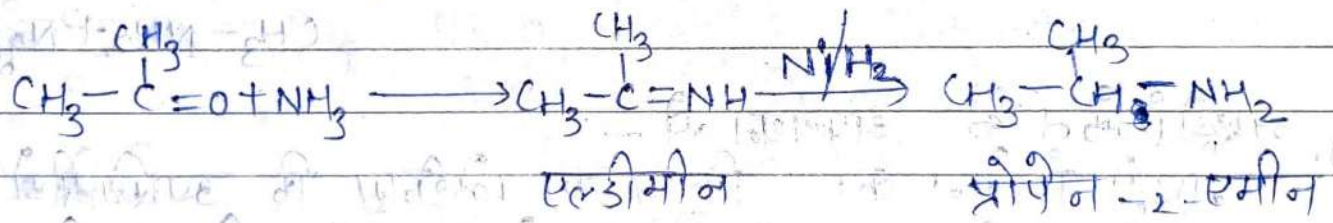 CH₃ CH₃ CH₃
CH₃-C=O+NH₃ ⟶ CH₃-C=NH Ni/H₂⟶ CH₃-CH-NH₂
एल्डीमीन प्रोपेन-2-एमीन